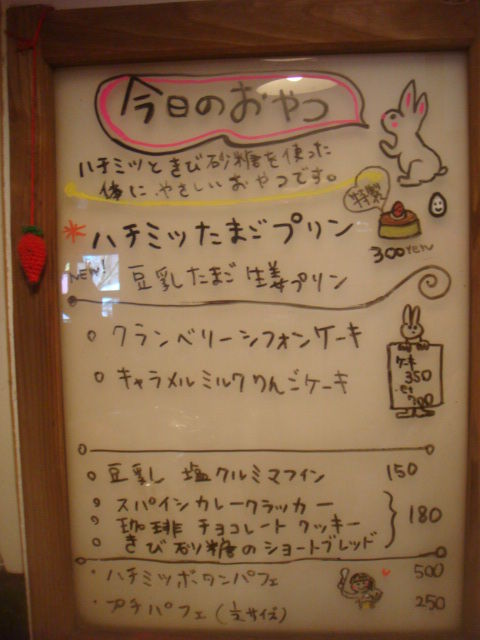 今日のおやつ
ハチミツときび砂糖を使った
体にやさしいおやつです。
特製
ハチミツたまごプリン
300yen
NEW! 豆乳たまご生姜プリン
クランベリーシフォンケーキ
ケーキ
350
キャラメルミルクりんごケーキ
700
豆乳 塩クルミマフィン 150
スパイシカレークラッカー
珈琲 チョコレートクッキー 180
きび砂糖のショートブレッド
・ハチミツボタンパフェ 500
・プチパフェ(½サイズ) 250